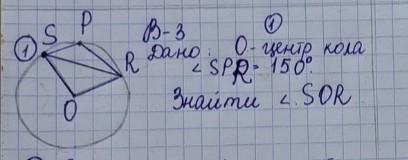 В-3 ①
① S P R O
Дано: О-центр кола
∠SPR = 150°.
Знайти ∠SOR